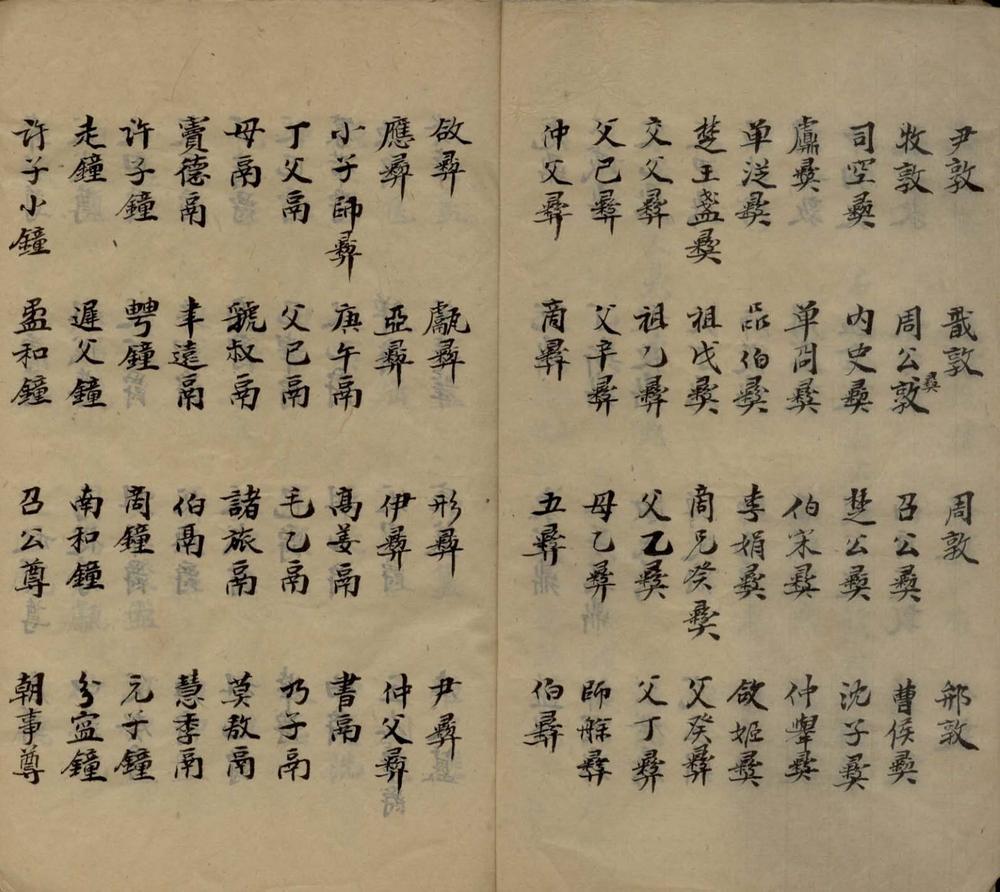 尹敦　戠敦　周敦　郱敦
牧敦　周公敦彝　召公彝　曹侯彝
司空彝　内史彝　楚公彝　沈子彝
彝　单冏彝　伯宋彝　仲彝
单彝　品伯彝　季娟彝　敛姬彝
楚王盏彝　祖戊彝　商兄癸彝　父癸彝
交父彝　祖乙彝　父乙彝　父丁彝
父己彝　父辛彝　母乙彝　師艅彝
仲父彝　商彝　五彝　伯彝
敛彝　甗彝　形彝　尹彝
應彝　亞彝　伊彝　仲父彝
小子師彝　庚午鬲　高姜鬲　書鬲
丁父鬲　父己鬲　毛乙鬲　乃子鬲
母鬲　虢叔鬲　諸旅鬲　莫敖鬲
竇德鬲　聿遠鬲　伯鬲　慧季鬲
许子鐘　鐘　周鐘　元子鐘
走鐘　遲父鐘　南和鐘　分寍鐘
许子小鐘　盄和鐘　召公尊　朝事尊